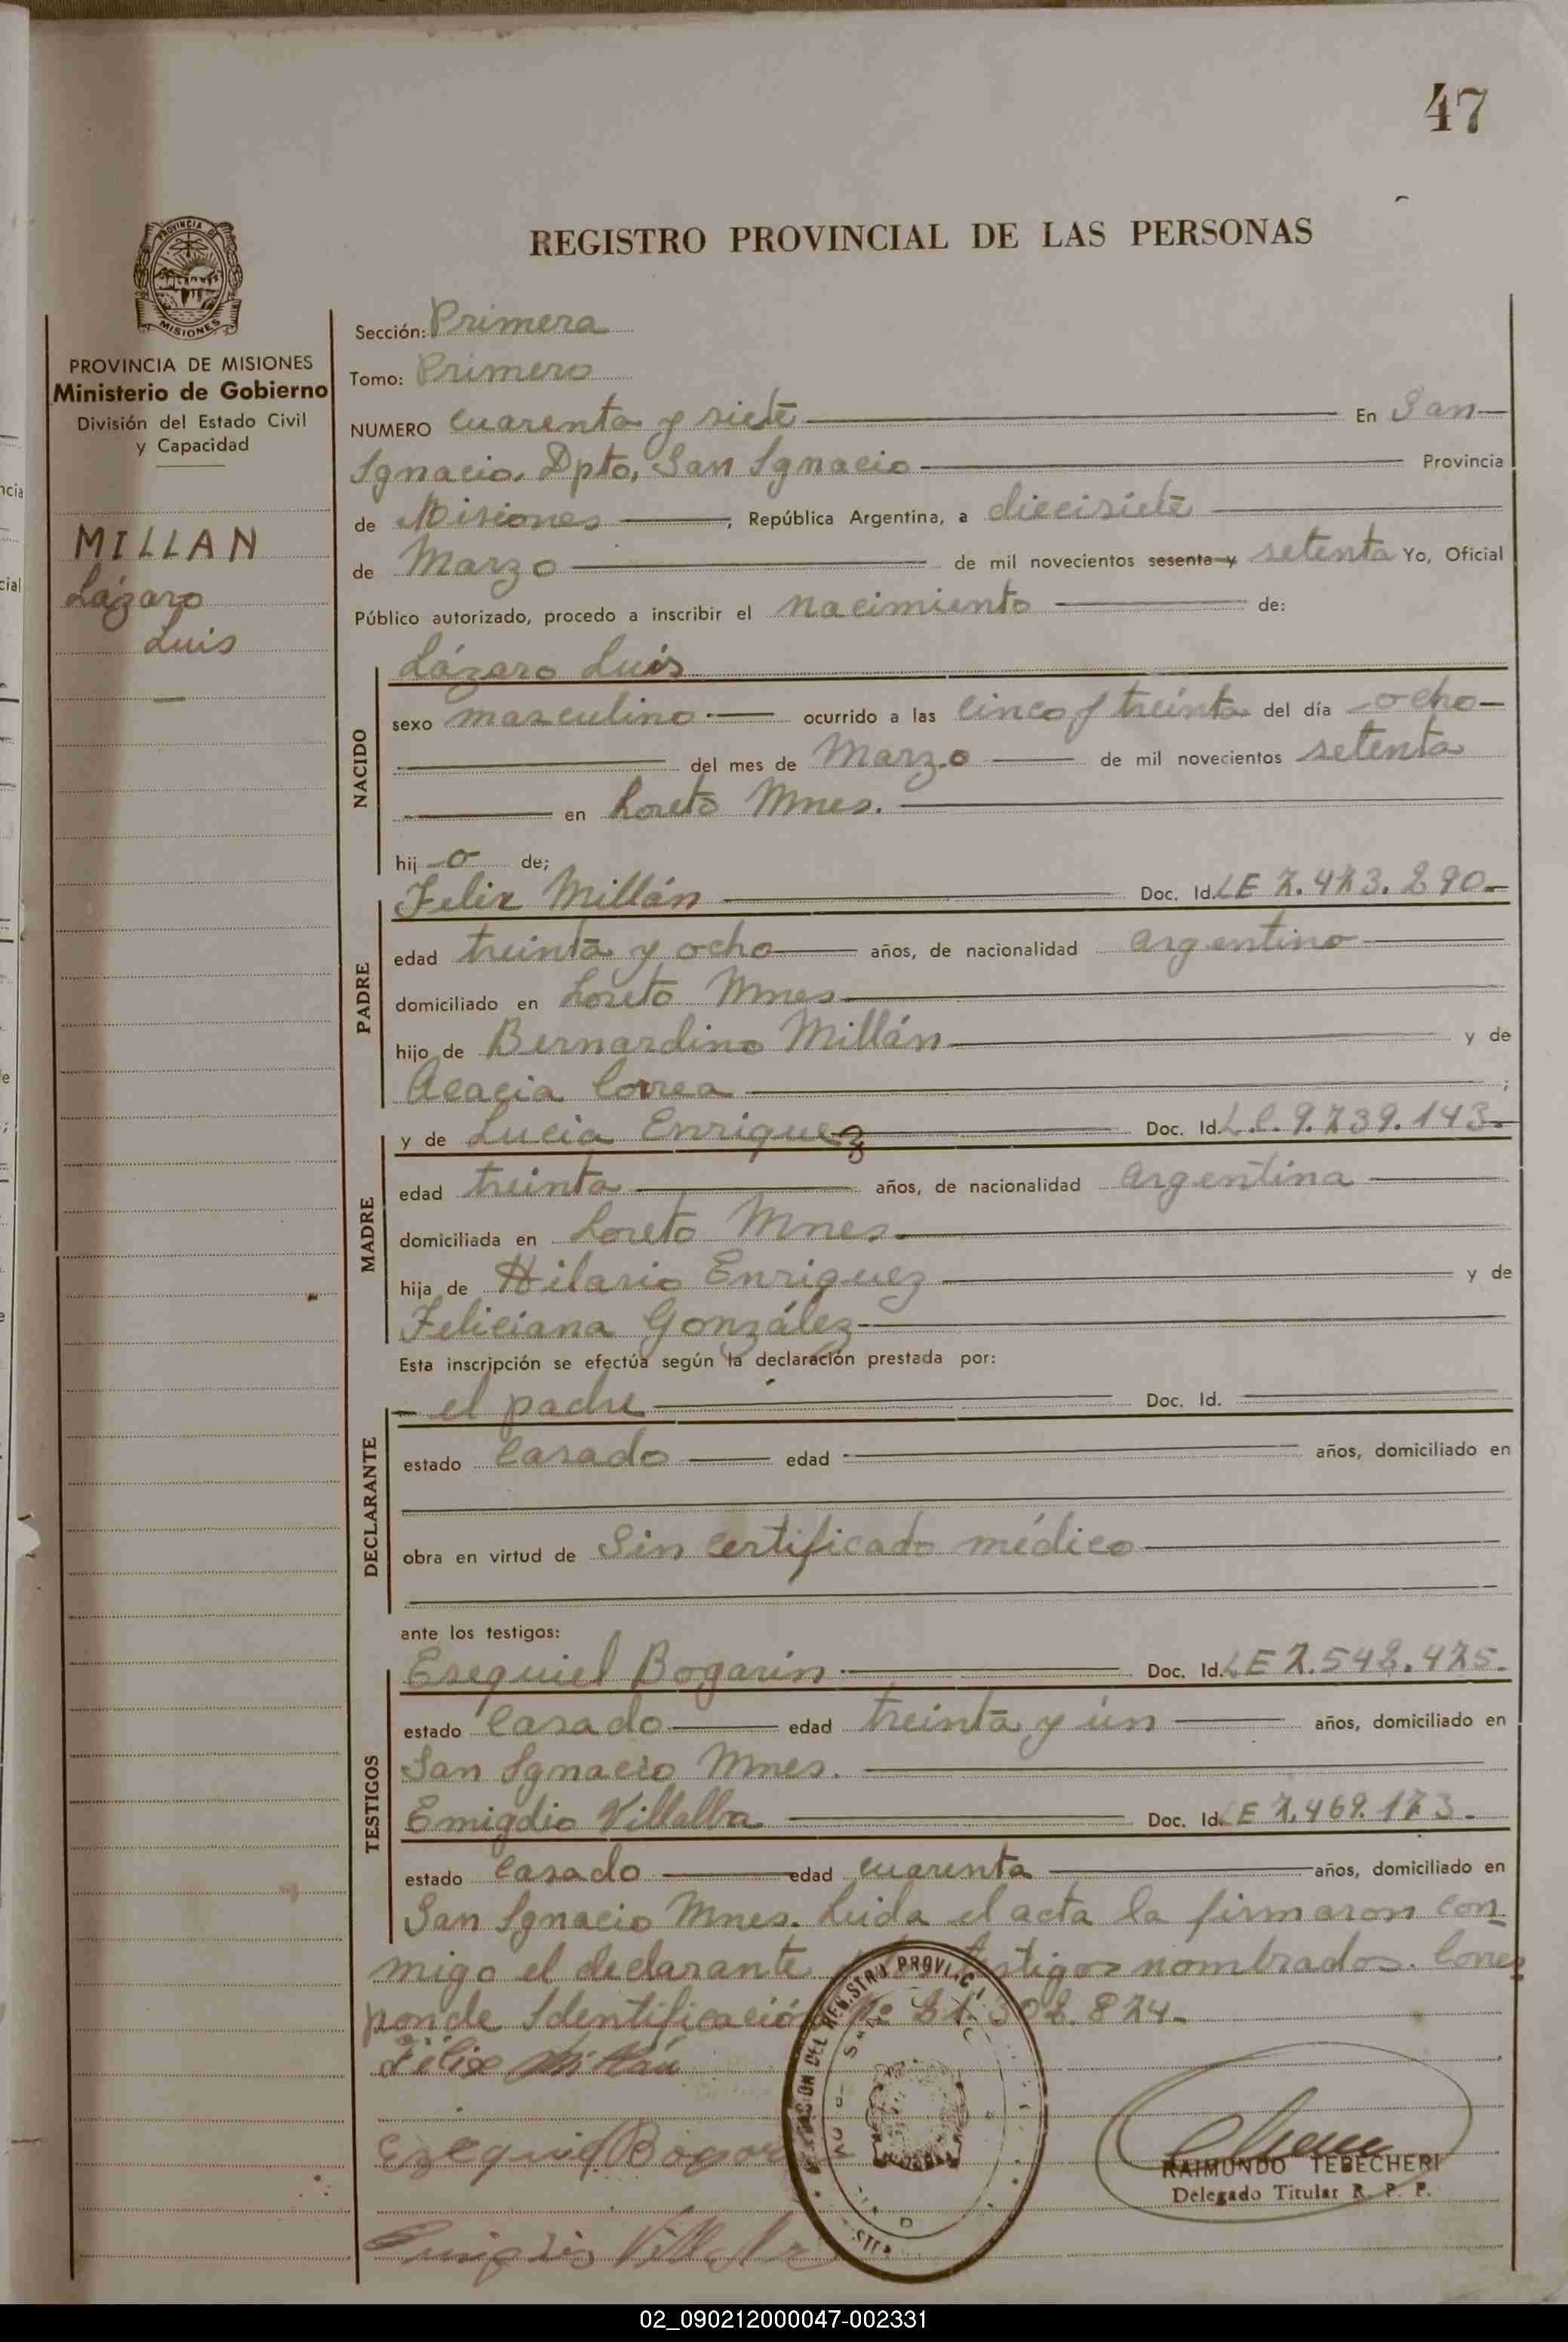 47
PROVINCIA DE
MISIONES
PROVINCIA DE MISIONES
Ministerio de Gobierno
División del Estado Civil
y Capacidad
MILLAN
Lázaro
Luis
REGISTRO PROVINCIAL DE LAS PERSONAS
Sección: Primera
Tomo: Primero
NUMERO cuarenta y siete En San
Ignacio, Dpto, San Ignacio Provincia
de Misiones, República Argentina, a diecisiete
de Marzo de mil novecientos sesenta y setenta Yo, Oficial
Público autorizado, procedo a inscribir el nacimiento de:
Lázaro Luis
NACIDO
sexo masculino ocurrido a las cinco y treinta del día ocho
del mes de Marzo de mil novecientos setenta
en Loreto Mnes.
hij o de;
Felix Millán Doc. Id. LE 7.473.290.
PADRE
edad treinta y ocho años, de nacionalidad argentino
domiciliado en Loreto Mnes
hijo de Bernardino Millán y de
Acacia Correa ;
MADRE
y de Lucia Enriquez Doc. Id. L.C. 9.739.143.
edad treinta años, de nacionalidad argentina
domiciliada en Loreto Mnes.
hija de Hilario Enriquez y de
Feliciana González
Esta inscripción se efectúa según la declaración prestada por:
DECLARANTE
el padre Doc. Id.
estado Casado edad años, domiciliado en
obra en virtud de Sin certificado médico
ante los testigos:
TESTIGOS
Esequiel Bogarin Doc. Id. LE 7.542.475.
estado Casado edad treinta y ún años, domiciliado en
San Ignacio Mnes.
Emigdio Villalba Doc. Id. LE 7.469.173.
estado Casado edad cuarenta años, domiciliado en
San Ignacio Mnes. Leida el acta la firmaron con
migo el declarante testigos nombrados. Corres
ponde Identificación Nº 21.302.874.
Félix
Ezequiel Bogar
Villalba
RAIMUNDO TEBECHERI
Delegado Titular R. P. P.
02_090212000047-002331